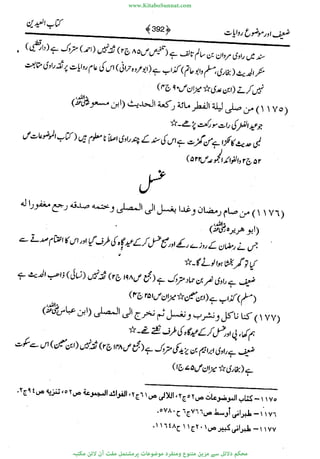 www.KitaboSunnat.com
ضعیف اور موضوع روایات ﴿392﴾ کتاب العیدین
سند میں راوی مروان بن سالم تالف ہے (تلخیص ص۸۵ ج۲) ثقہ نہیں (احمد) متروک ہے (دارقطنی)
منکر الحدیث (بخاری، مسلم، ابو حاتم) کذاب ہے (ابو عروبہ حرانی) اس کی عام روایات پر ثقہ راوی متابعت
نہیں کرتے (ابن عدی) ☆ میزان ص۹۰ ج۴)
(۱۱۷۵) من صلی لیلة الفطر مائة رکعة الحدیث (ابن مسعود)
جو عید الفطر کی رات سو رکعت پڑھے۔ ☆
لمبی حدیث کا ٹکڑا ہے من گھڑت ہے اس کی سند کے چند راوی اصلاً نا معلوم ہیں (کتاب الموضوعات ص
۵۲ ج۲ والفوائد المجموعہ ص۵۲)
غسل
(۱۱۷۶) من صام رمضان وغدا بغسل الی المصلی وختمه صدقه رجع مغفورا له
(ابو ہریرہ)
جس نے رمضان کے روزے رکھے اور صبح غسل کر کے عیدگاہ کی طرف گیا اور اس کا اختتام صدقے سے
کیا تو گھر بخشا ہوا لوٹے گا۔ ☆
ضعیف ہے راوی نصر بن حماد متروک ہے (مجمع ص۱۹۸ ج۲) ثقہ نہیں (نسائی) ذاھب الحدیث ہے
(مسلم) کذاب ہے (ابن معین) ☆ میزان ص۲۵۱ ج۴)
(۱۷۷) کنا ناکل ونشرب ونغسل ثم نخرج الی المصلی (ابن عباس)
ہم کھا، پی اور غسل کر کے عیدگاہ کی طرف نکلتے تھے۔ ☆
ضعیف ہے راوی ابراہیم بن یزید مکی متروک ہے (مجمع ص۱۳۸ ج۲) ثقہ نہیں (ابن معین) اس سے سکوت
ہے (بخاری) ☆ میزان ص۷۵ ج۱)
۱۱۷۵– کتاب الموضوعات ص۵۲ ج۲، اللالی ص۶۱ ج۲، الفوائد المجموعة ص۵۲، تنزیه ص۹۴ ج۲.
۱۱۷۶– طبرانی اوسط ص۷۶۶ ج۶ ح۵۷۸۰.
۱۱۷۷– طبرانی کبیر ص۲۰۱ ج۱۱ ح۱۱۶۴۸.
محکم دلائل سے مزین متنوع ومنفرد موضوعات پر مشتمل مفت آن لائن مکتبہ